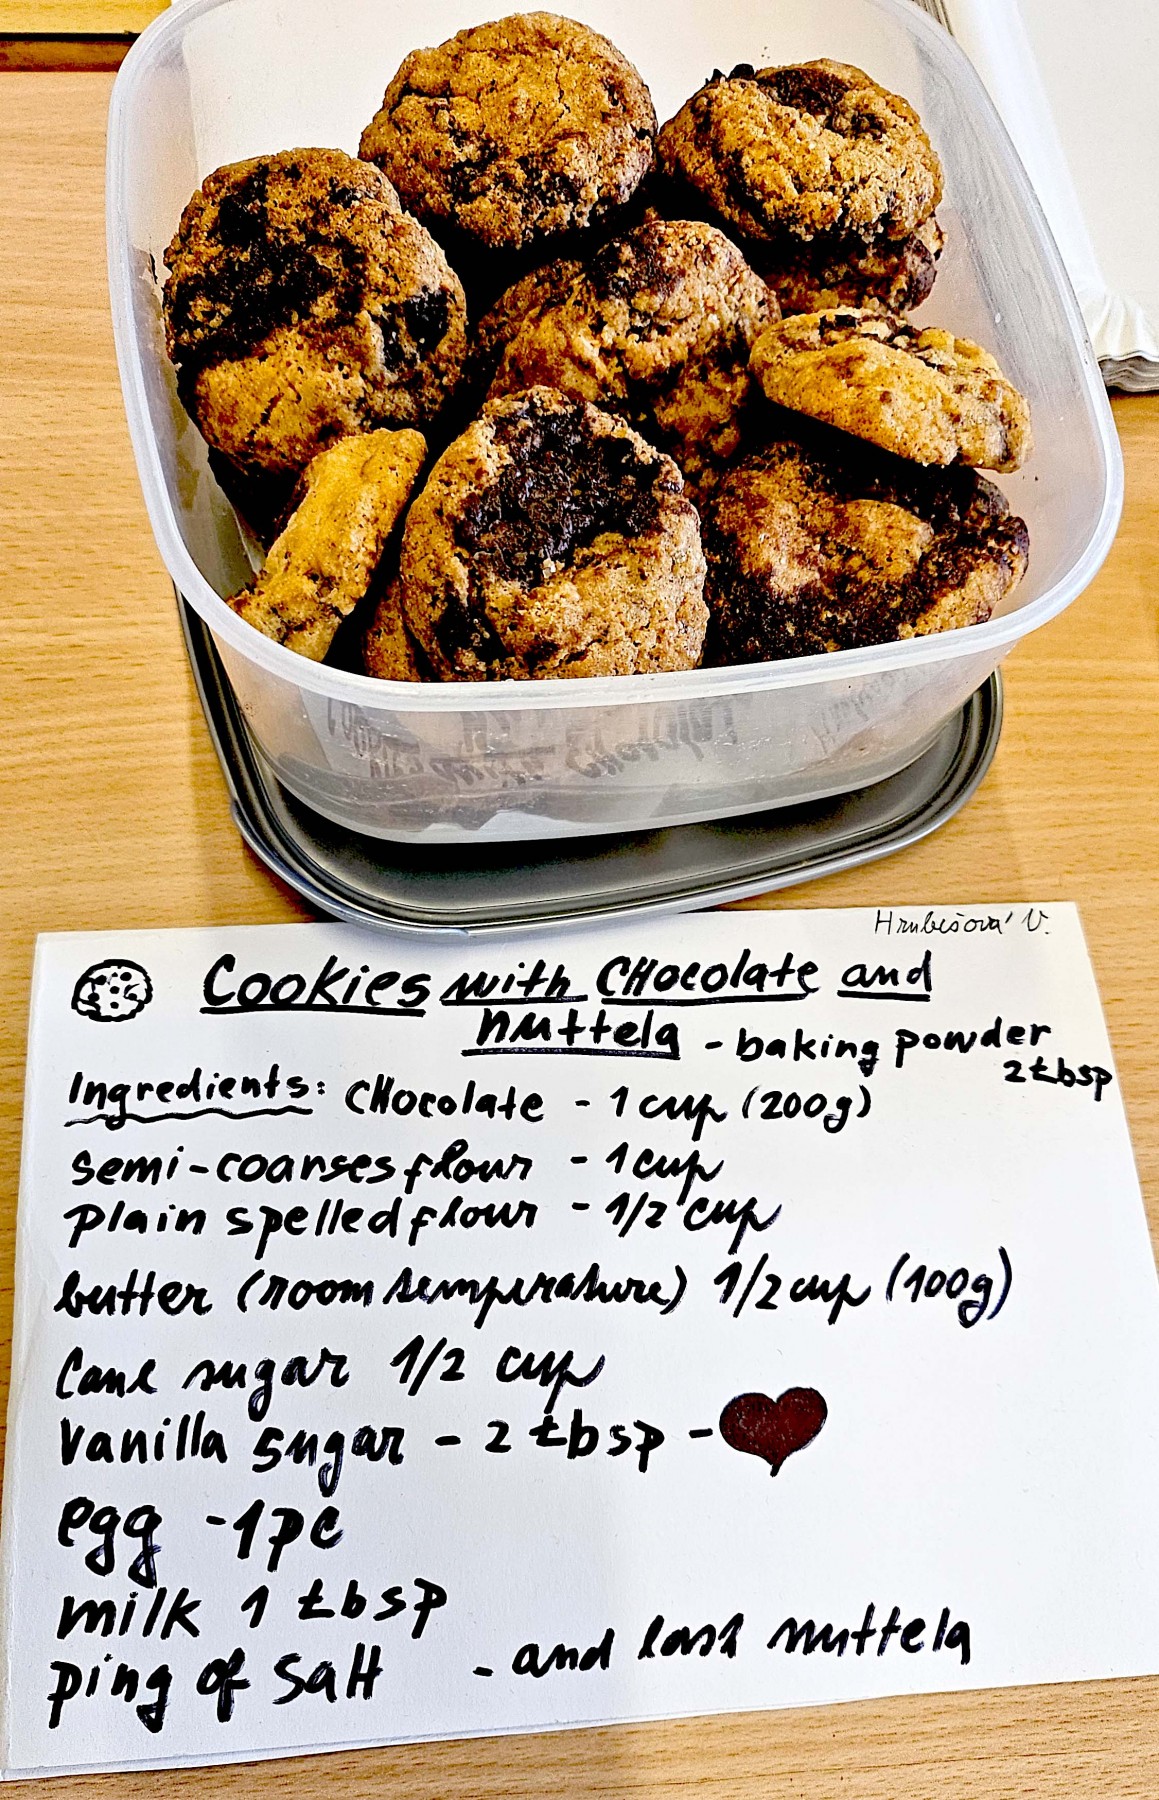 Hrubešová V.
Cookies with CHocolate and
nuttela - baking powder
2tbsp
Ingredients: CHocolate - 1 cup (200g)
semi-coarses flour - 1 cup
plain spelled flour - 1/2 cup
butter (room temperature) 1/2 cup (100g)
Cane sugar 1/2 cup
Vanilla sugar - 2 tbsp -
egg - 1 pc
milk 1 tbsp
ping of salt - and last nuttela